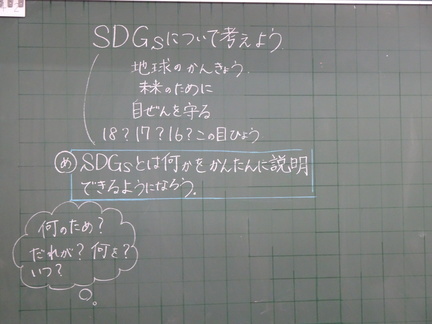 SDGsについて考えよう
地球のかんきょう
未来のために
自ぜんを守る
18?17?16?この目ひょう
め SDGsとは何かをかんたんに説明
できるようになろう。
何のため?
だれが?何を?
いつ?